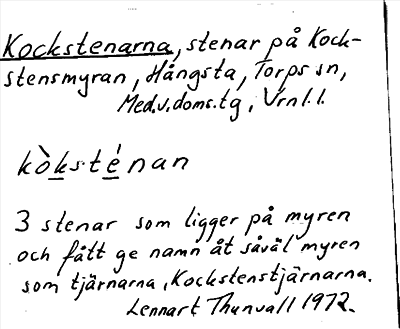 Kockstenarna, stenar på Kock-
stensmyran, Hångsta, Torps sn,
Med.v.doms.tg, Vrnl.l.
kòksténan
3 stenar som ligger på myren
och fått ge namn åt såväl myren
som tjärnarna, Kockstenstjärnarna.
Lennart Thunvall 1972.